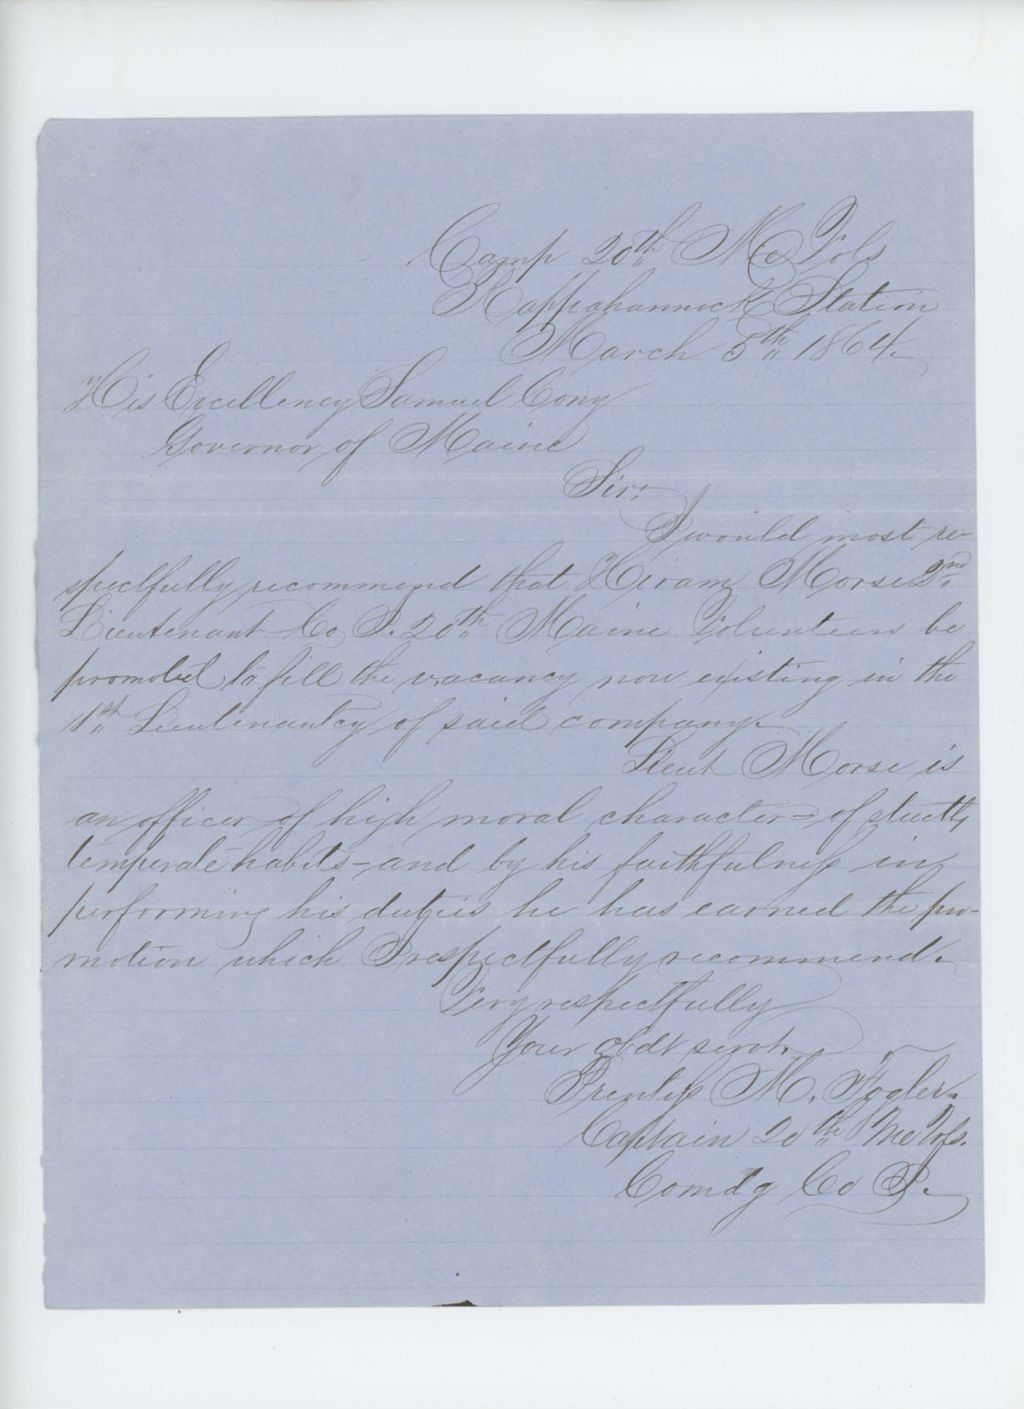 Camp 20th Me Vols
Rappahannock Station
March 5th 1864.
His Excellency Samuel Cony
Governor of Maine
Sir;
I would most re-
spectfully recommend that Hiram Morse 2nd
Lieutenant Co I. 20th Maine Volunteers be
promoted to fill the vacancy now existing in the
1st Lieutenantcy of said company.
Lieut Morse is
an officer of high moral character - of strictly
temperate habits - and by his faithfulness in
performing his duties he has earned the pro-
motion which I respectfully recommend.
Very respectfully
Your obdt servt.
Prentiss M. Fogler.
Captain 20th Me Vols.
Comdg Co I.